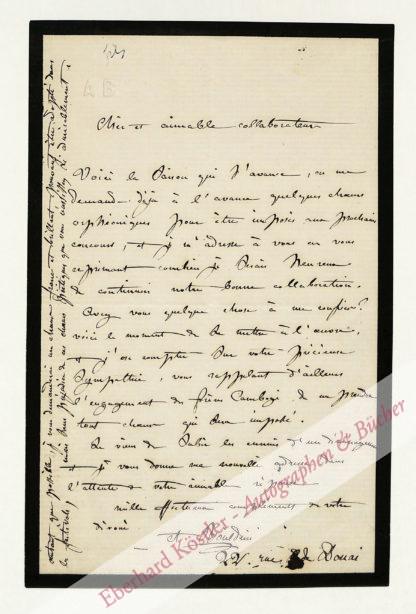 Cher et aimable collaborateur
Voici la saison qui s'avance, on me
demande déjà à l'avance quelques chœurs
orphéoniques pour être imposés aux prochains
concours, et je m'adresse à vous en vous
exprimant combien je serais heureux
de continuer notre bonne collaboration.
Avez vous quelque chose à me confier?
voici le moment de se mettre à l'œuvre,
et j'ose compter sur votre précieuse
sympathie, vous rappelant d'ailleurs
l'engagement des frères de me prendre
tout chœur qui sera imposé.
Je viens de subir les ennuis d'un déménagement
et je vous donne ma nouvelle adresse dans
l'attente de votre aimable réponse
mille affectueux compliments de votre
dévoué
22, rue de Douai
autant que possible, je vous demanderai un chœur franc et brillant pouvant être exécuté dans
les festivals
Eberhard Köstler - Autographen & Bücher